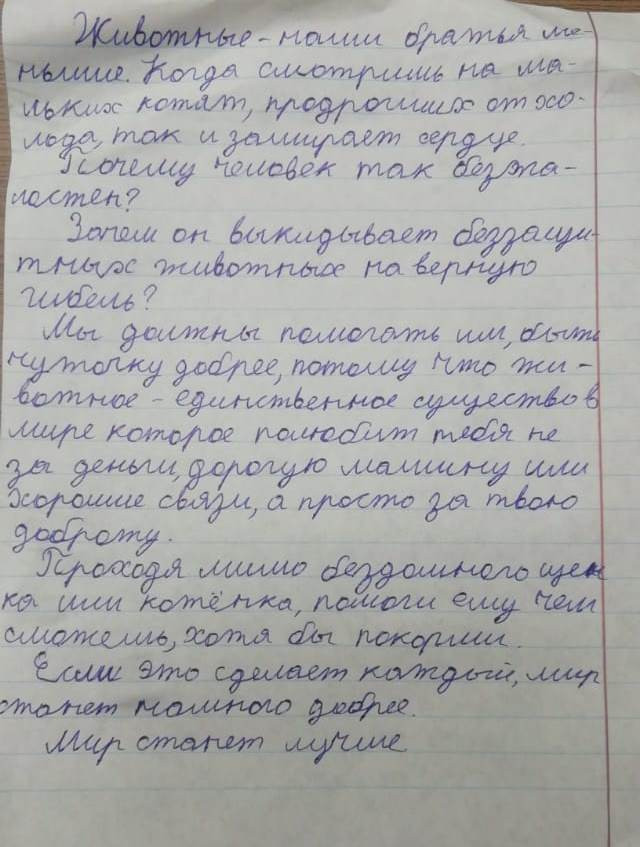 Животные - наши братья ме-
ньшие. Когда смотришь на ма-
льких котят, продрогших от хо-
лода, так и замирает сердце.
Почему человек так безжа-
лостен?
Зачем он выкидывает беззащи-
тных животных на верную
гибель?
Мы должны помогать им, быть
чуточку добрее, потому что жи-
вотное - единственное существо в
мире которое полюбит тебя не
за деньги, дорогую машину или
хорошие связи, а просто за твою
доброту.
Проходя мимо бездомного щен
ка или котёнка, помоги ему чем
сможешь, хотя бы покорми.
Если это сделает каждый, мир
станет намного добрее.
Мир станет лучше